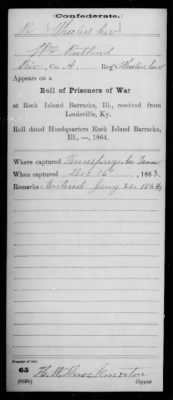 Confederate.
R Wheelers Cav
Wm Rutland
Co. A. Reg't Wheelers Cav
Appears on a
Roll of Prisoners of War
at Rock Island Barracks, Ill., received from
Louisville, Ky.
Roll dated Headquarters Rock Island Barracks,
Ill., —, 1864.
Where captured Humphreys Co Tenn
When captured Dec 16, 1863.
Remarks: Entered Jany 20 1864
Number of roll:
65
(639b) Copyist